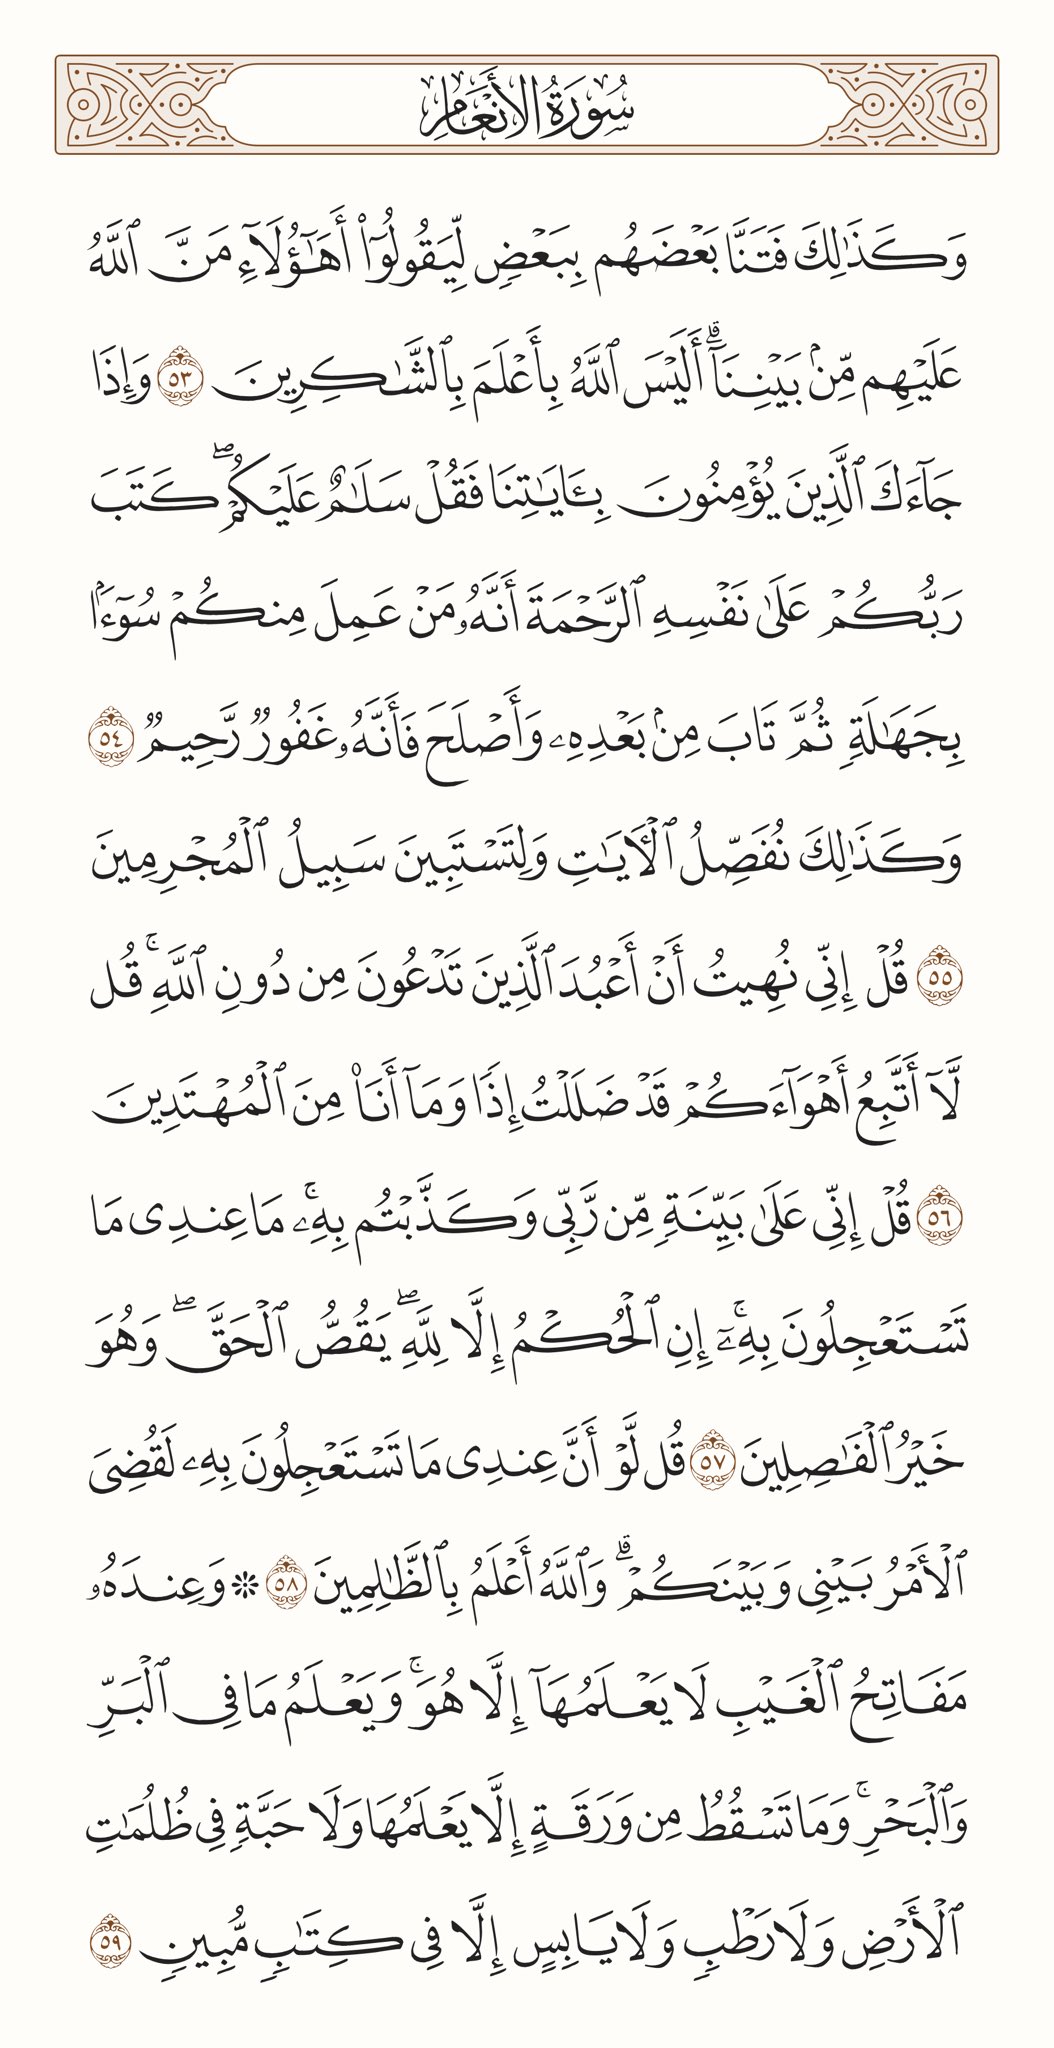 سُورَةُ الأَنْعَامِ
وَكَذَٰلِكَ فَتَنَّا بَعْضَهُم بِبَعْضٍ لِّيَقُولُوٓا۟ أَهَـٰٓؤُلَآءِ مَنَّ ٱللَّهُ
عَلَيْهِم مِّنۢ بَيْنِنَآ ۗ أَلَيْسَ ٱللَّهُ بِأَعْلَمَ بِٱلشَّـٰكِرِينَ ٥٣ وَإِذَا
جَآءَكَ ٱلَّذِينَ يُؤْمِنُونَ بِـَٔايَـٰتِنَا فَقُلْ سَلَـٰمٌ عَلَيْكُمْ ۖ كَتَبَ
رَبُّكُمْ عَلَىٰ نَفْسِهِ ٱلرَّحْمَةَ أَنَّهُۥ مَنْ عَمِلَ مِنكُمْ سُوٓءًۢا
بِجَهَـٰلَةٍ ثُمَّ تَابَ مِنۢ بَعْدِهِۦ وَأَصْلَحَ فَأَنَّهُۥ غَفُورٌ رَّحِيمٌ ٥٤
وَكَذَٰلِكَ نُفَصِّلُ ٱلْـَٔايَـٰتِ وَلِتَسْتَبِينَ سَبِيلُ ٱلْمُجْرِمِينَ
٥٥ قُلْ إِنِّى نُهِيتُ أَنْ أَعْبُدَ ٱلَّذِينَ تَدْعُونَ مِن دُونِ ٱللَّهِ ۚ قُل
لَّآ أَتَّبِعُ أَهْوَآءَكُمْ قَدْ ضَلَلْتُ إِذًا وَمَآ أَنَا۠ مِنَ ٱلْمُهْتَدِينَ
٥٦ قُلْ إِنِّى عَلَىٰ بَيِّنَةٍ مِّن رَّبِّى وَكَذَّبْتُم بِهِۦ ۚ مَا عِندِى مَا
تَسْتَعْجِلُونَ بِهِۦٓ ۚ إِنِ ٱلْحُكْمُ إِلَّا لِلَّهِ ۖ يَقُصُّ ٱلْحَقَّ ۖ وَهُوَ
خَيْرُ ٱلْفَـٰصِلِينَ ٥٧ قُل لَّوْ أَنَّ عِندِى مَا تَسْتَعْجِلُونَ بِهِۦ لَقُضِىَ
ٱلْأَمْرُ بَيْنِى وَبَيْنَكُمْ ۗ وَٱللَّهُ أَعْلَمُ بِٱلظَّـٰلِمِينَ ٥٨ ۞ وَعِندَهُۥ
مَفَاتِحُ ٱلْغَيْبِ لَا يَعْلَمُهَآ إِلَّا هُوَ ۚ وَيَعْلَمُ مَا فِى ٱلْبَرِّ
وَٱلْبَحْرِ ۚ وَمَا تَسْقُطُ مِن وَرَقَةٍ إِلَّا يَعْلَمُهَا وَلَا حَبَّةٍ فِى ظُلُمَـٰتِ
ٱلْأَرْضِ وَلَا رَطْبٍ وَلَا يَابِسٍ إِلَّا فِى كِتَـٰبٍ مُّبِينٍ ٥٩